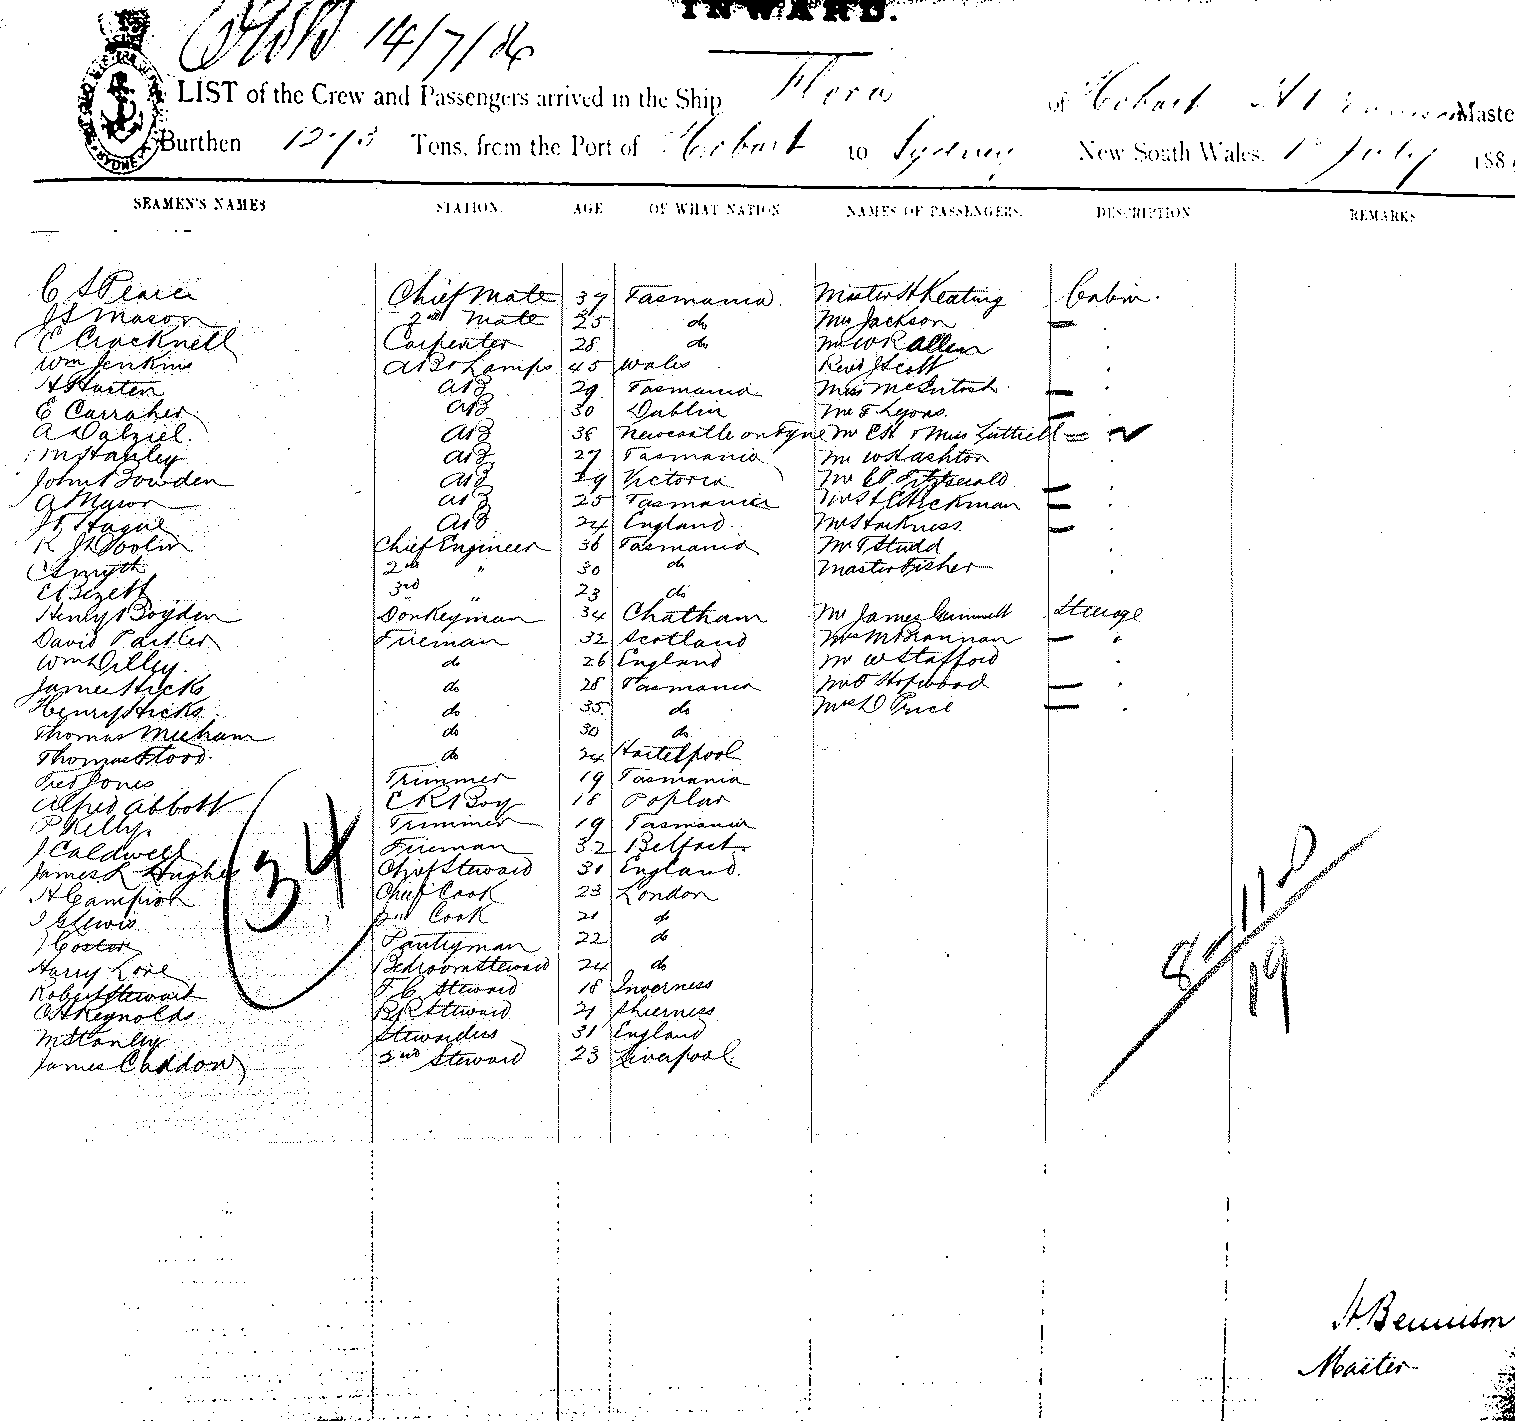 INWARD.
14/7/86
LIST of the Crew and Passengers arrived in the Ship Flora of Hobart Maste
Burthen 1273 Tons, from the Port of Hobart to Sydney New South Wales, July 188
SEAMEN'S NAMES STATION. AGE OF WHAT NATION NAMES OF PASSENGERS. DESCRIPTION REMARKS
C S Pearce Chief Mate 37 Tasmania. Master H Keating Cabin.
J S Mason 2nd Mate 25 do Mrs Jackson
E Cracknell Carpenter 28 do Mr W R Allen
Wm Jenkins AB & Lamps 45 Wales Revd J Scott
H Harten AB 29 Tasmania Miss McIntosh
E Carraher AB 30 Dublin Mr T Lyons.
A Dalziel. AB 38 Newcastle on Tyne Mr CH & Miss Luttrell
M Hanley AB 27 Tasmania Mr W H Ashton
John Bowden AB 29 Victoria Mr Fitzgerald
A Mason AB 25 Tasmania Hickman
Hague AB 24 England Harkness
R J Chief Engineer 36 Tasmania Mr T Studd
C Smyth 2nd " 30 do Master Fisher
3rd " 23 do
Henry Boyden Donkeyman 34 Chatham Mr James Gunnell Steerage
David Fireman 32 Scotland Mrs McBrannan "
Wm Dilley. do 26 England Mr W Stafford
James Hicks do 28 Tasmania Hopwood
Henry Hicks do 35 do Mrs D Price
Thomas Meeham do 30 do
Thomas Flood. do 24 Hartelpool
Fred Jones Trimmer 19 Tasmania
Alfred Abbott E R Boy 18 Poplar
P Kelly. Trimmer 19 Tasmania
J Caldwell Fireman 32 Belfast
James L Hughes Chief Steward 31 England.
H Campion Chief Cook 23 London
J Lewis 2nd Cook 21 do
J Coster Pantryman 22 do
Harry Love Bedroom Steward 24 do
Robert Stewart F C Steward 18 Inverness
C H Reynolds B R Steward 21 Shierness
M Stanley Stewardess 31 England
James Caddon 2nd Steward 23 Liverpool.
34
8
11
19
H. Bennison
Master